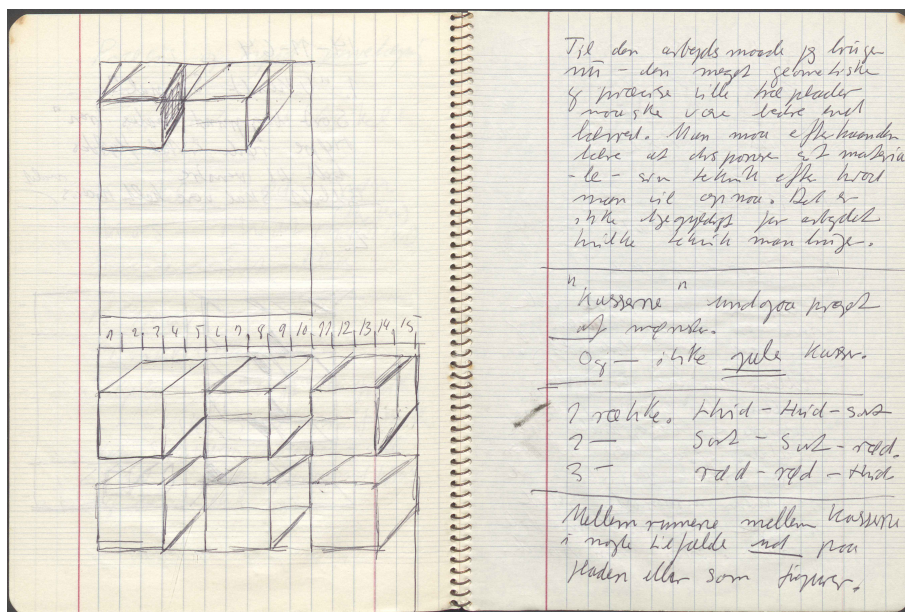 1 2 3 4 5 6 7 8 9 10 11 12 13 14 15
Til den arbejdsmaade jeg bruger
nu - den meget geometriske
og præcise ville træplader
maaske være bedre end
lærred. Man maa efterhaanden
lære at disponere sit materia
-le - sin teknik efter hvad
man vil opnaa. Det er
ikke ligegyldigt for arbejdet
hvilke teknik man bruger.
"Kasserne" undgaa præget
af mønster.
Og - ikke gule kasser.
1 række. Hvid - Hvid - sort
2 - Sort - Sort - rød.
3 - rød - rød - Hvid
Mellemrummene mellem kasserne
i nogle tilfælde ud paa
fladen eller som figurer.